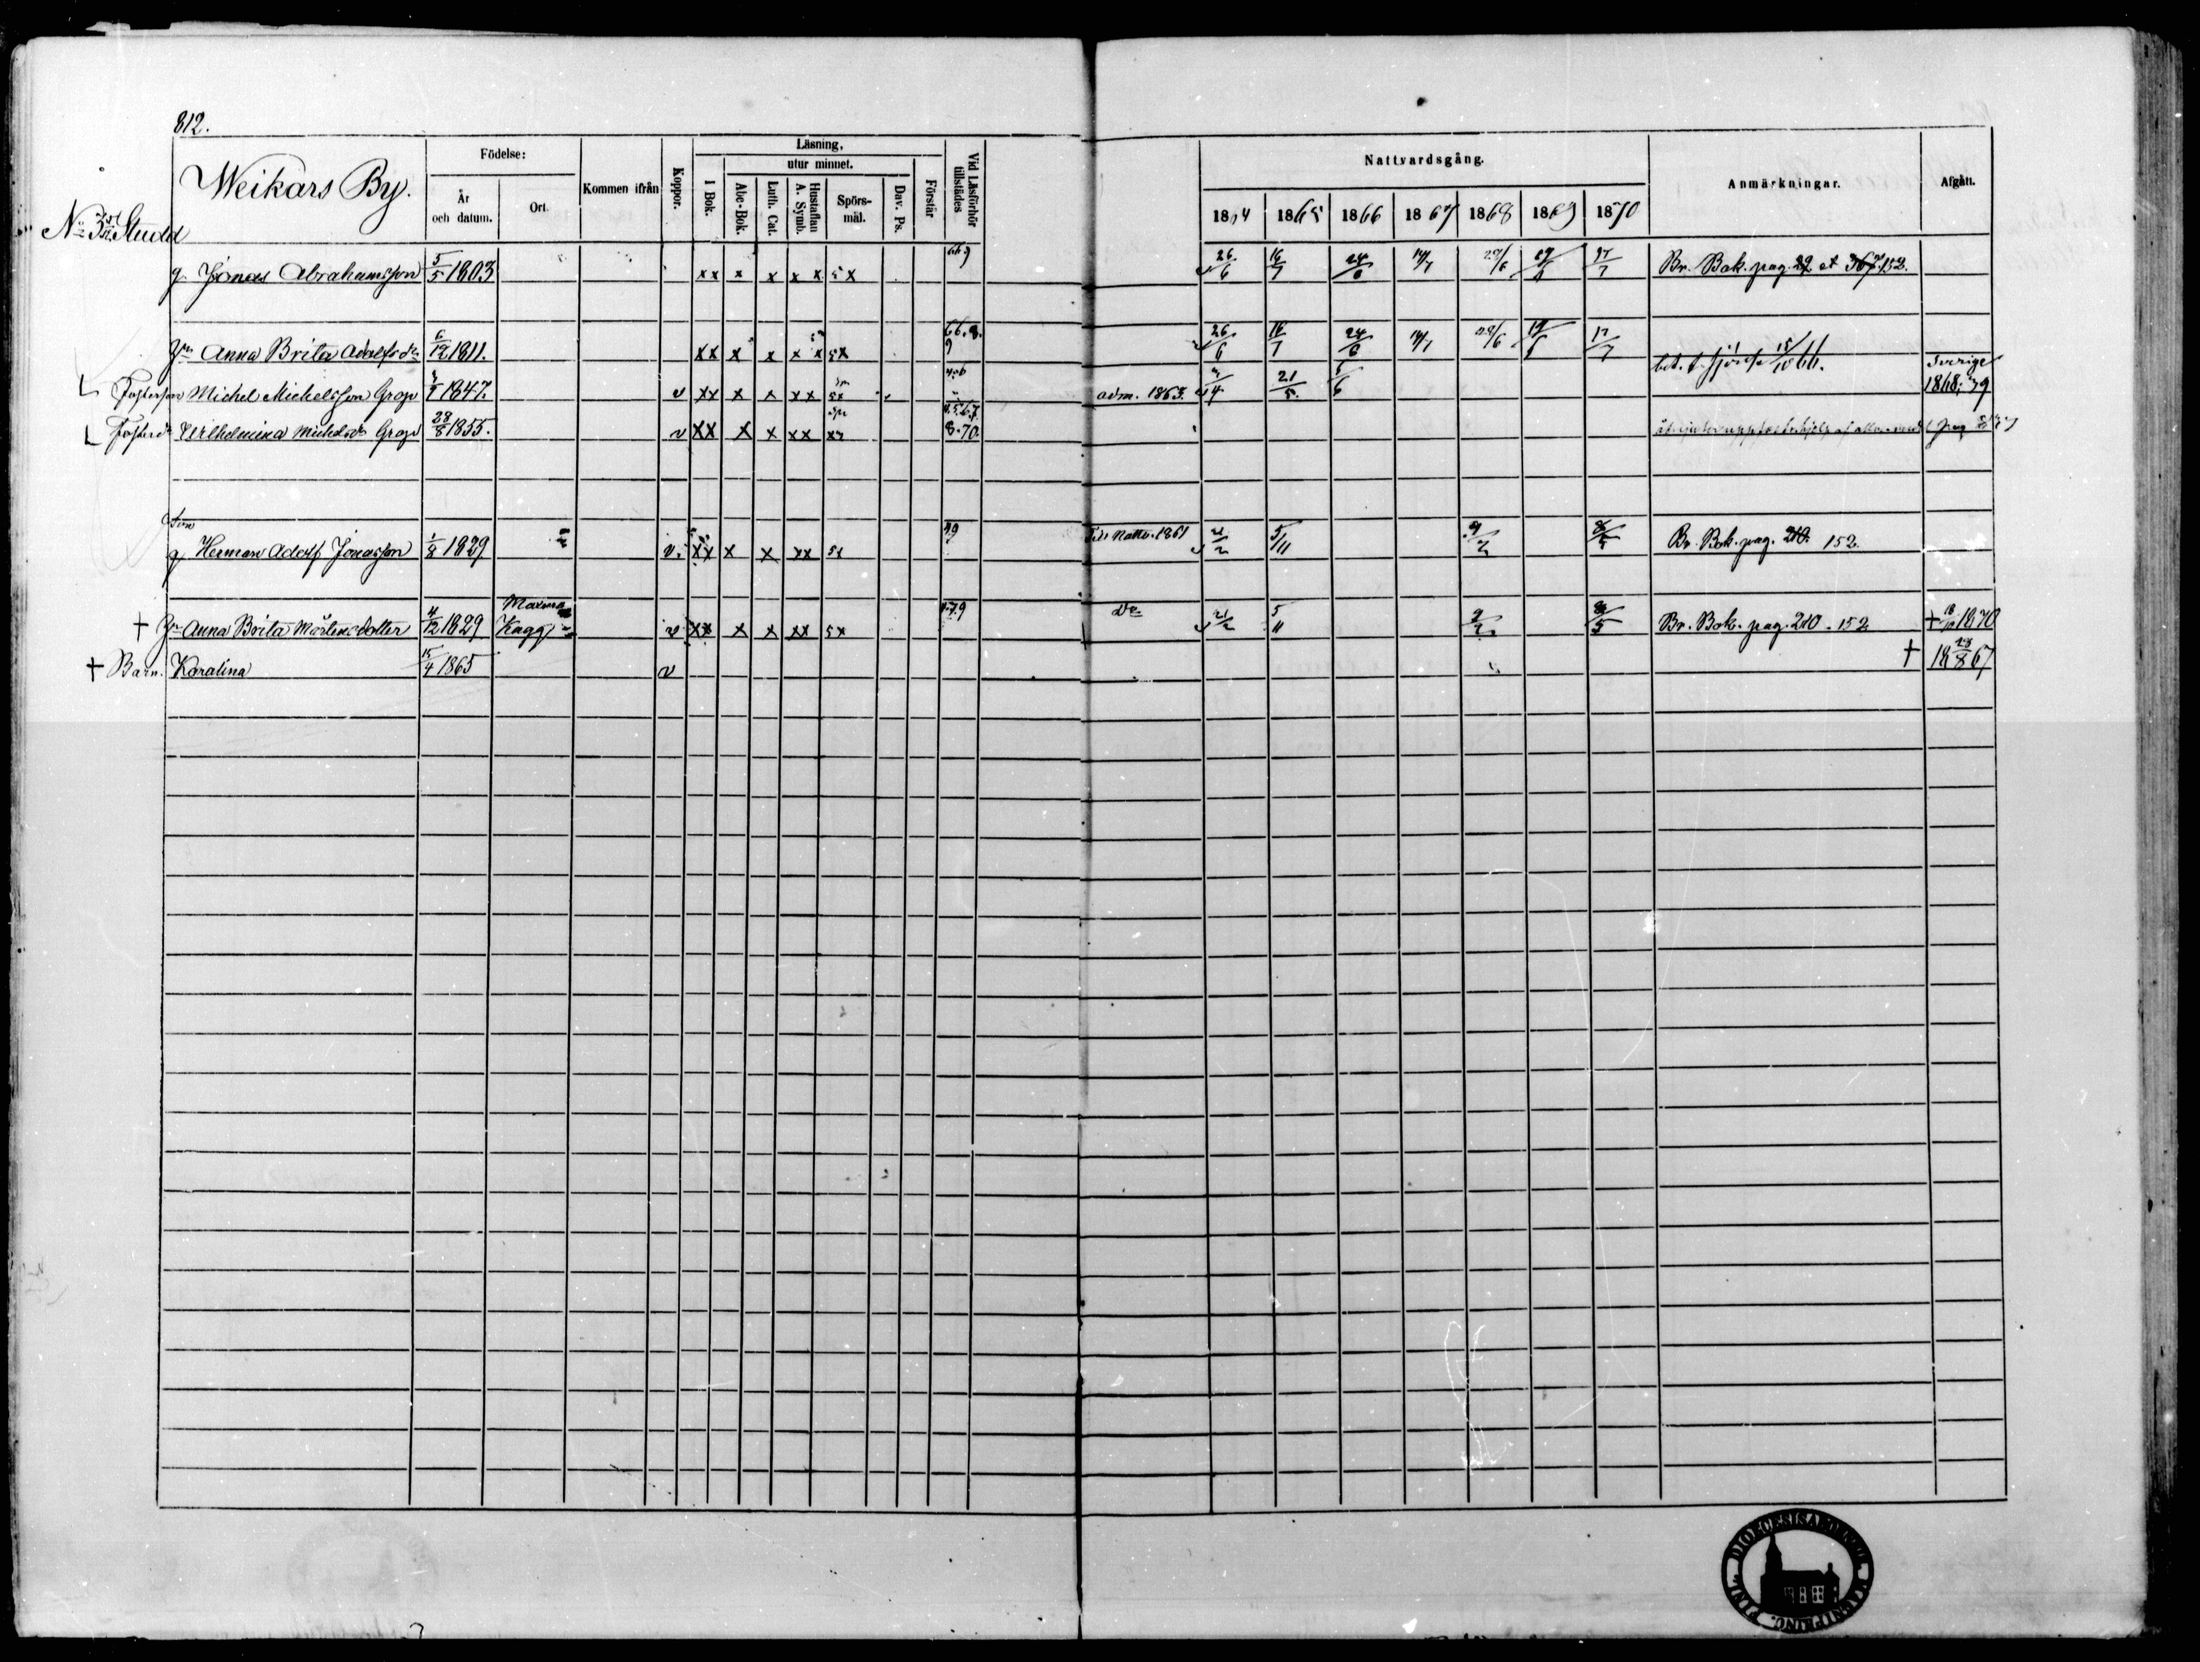 812.
Weikars By.
Födelse:
År och datum.
Ort.
Kommen ifrån
Koppor.
Läsning,
utur minnet.
I Bok.
Abc-Bok.
Luth. Cat.
Hustaflan A. Symb.
Spörs-mål.
Dav. Ps.
Förstår
Vid Läsförhör tillstädes
Nattvardsgång.
1864 1865 1866 1867 1868 1869 1870
Anmärkningar.
Afgått.
No 3 Studd
g. Jonas Abrahamsson 5/5 1803 xx x x x x 5x 26/6 16/7 24/6 14/7 28/6 27/6 17/7 Br. Bok. pag. 29 et 367. 152.
Anna Brita Adolfsdr 6/12 1811. xx x x x x 5x 26/6 16/7 24/6 14/7 28/6 17/7
Fosterson Michel Michelsson Grop 1847. v xx x x xx 5x adm. 1863. 21/5. bet. f. 15/10 66. Sverige 1868,
Fosterdr Wilhelmina Michelsdr Grop 28/8 1855. v xx x x xx 8.70.
Son
g. Herman Adolf Jonasson 1/8 1829 v. xx x x xx 5x Nattv. 1861 5/11 Br. Bok. pag. 210. 152.
† Anna Brita Mårtensdotter 4/12 1829 Maxmo Kagg v xx x x xx 5x Do 5/11 Br. Bok. pag. 210. 152 † 1870
† Barn. Karolina 15/4 1865 v † 18 23/8 67